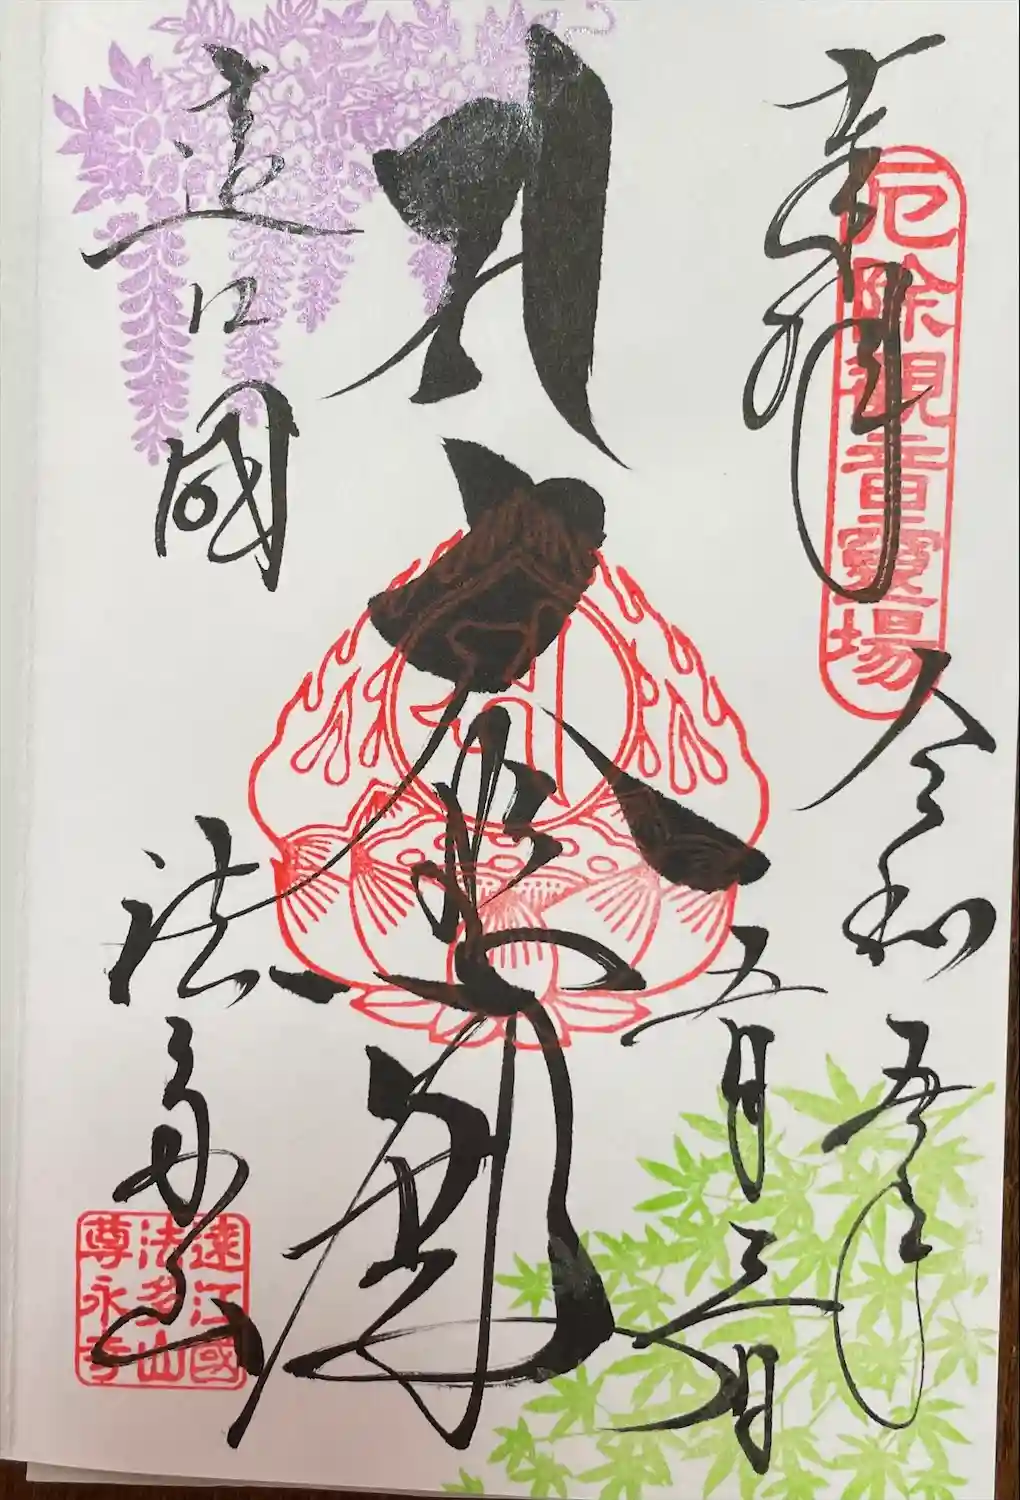 奉拝
厄除観音霊場
令和五年
五月三日
大悲閣
遠江国
法多山
遠江國
法多山
尊永寺